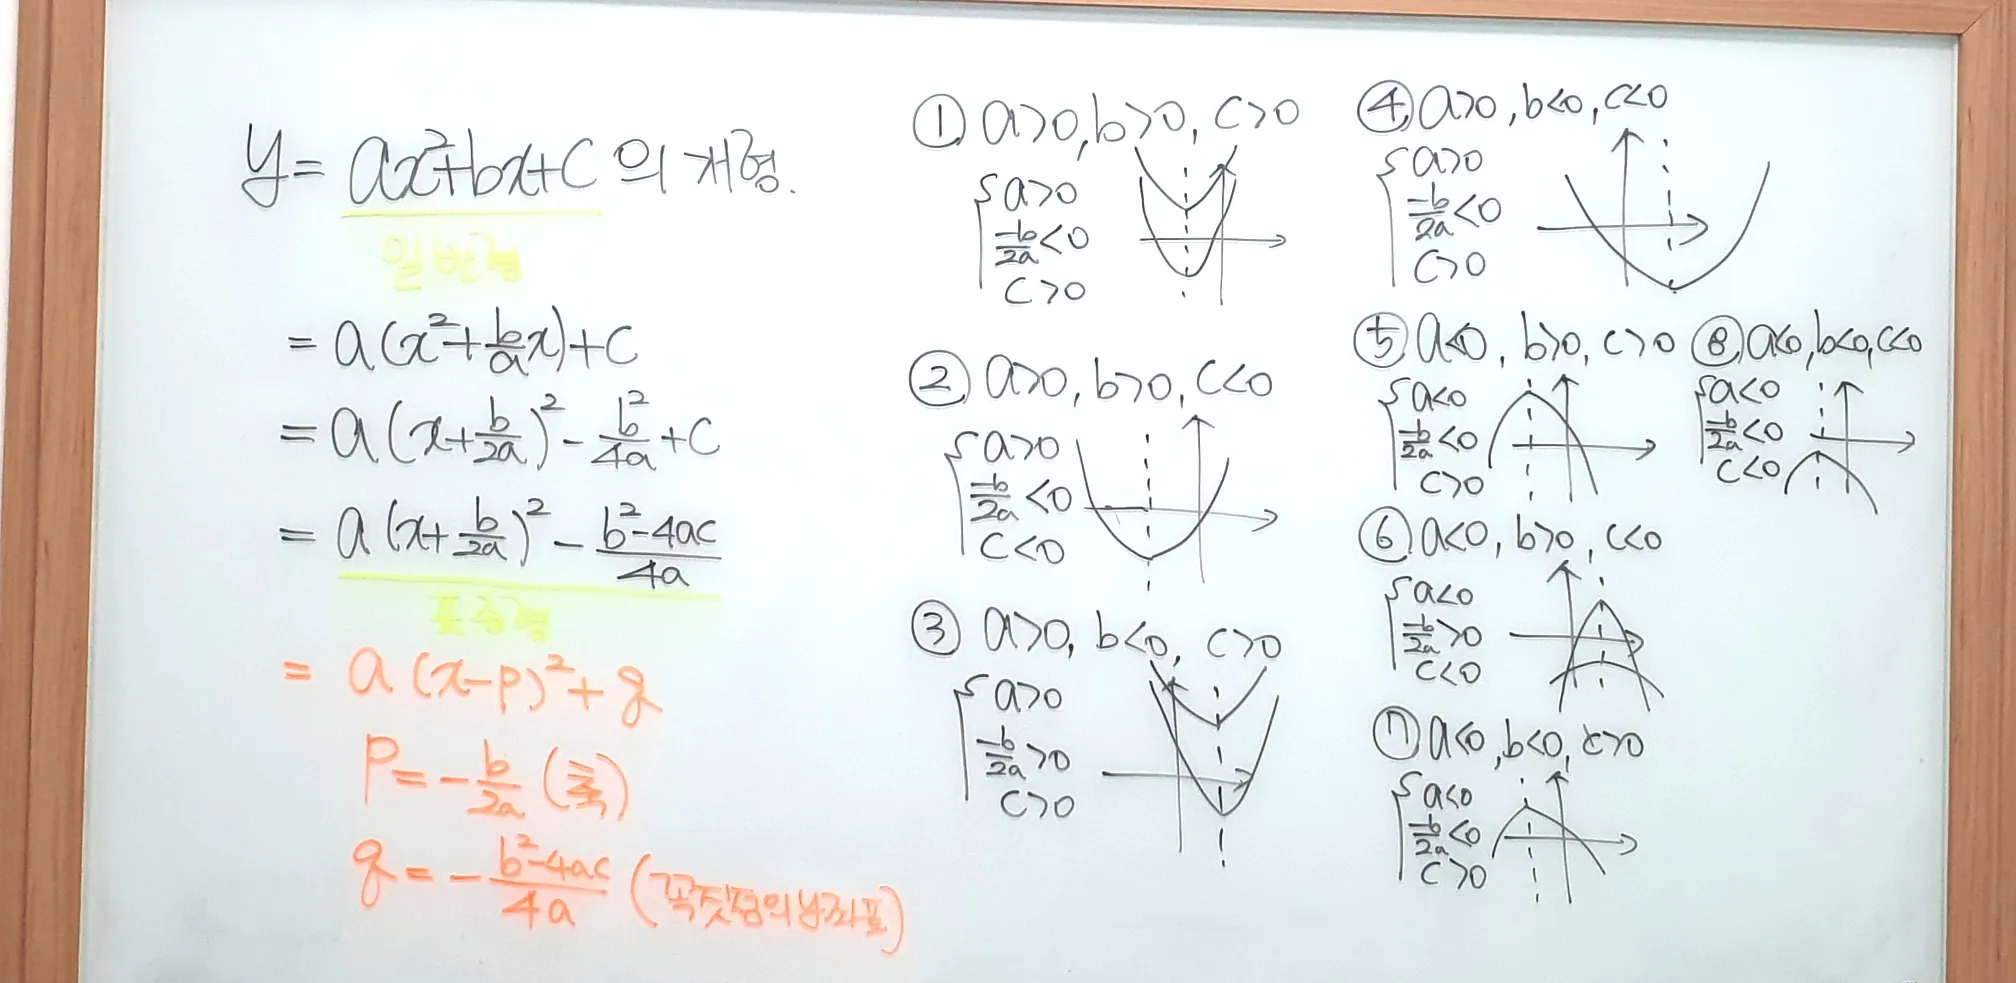 y = ax²+bx+c 의 개형.
일반형
= a(x²+b/a x)+c
= a(x+b/2a)² - b²/4a + c
= a(x+b/2a)² - b²-4ac/4a
표준형
= a(x-p)²+q
P = - b/2a (축)
q = - b²-4ac/4a (꼭짓점의 y좌표)
① a>0, b>0, c>0
a>0
-b/2a <0
c>0
② a>0, b>0, c<0
a>0
-b/2a <0
c<0
③ a>0, b<0, c>0
a>0
-b/2a >0
c>0
④ a>0, b<0, c<0
a>0
-b/2a <0
c>0
⑤ a<0, b>0, c>0
a<0
-b/2a <0
c>0
⑧ a<0, b<0, c<0
a<0
-b/2a <0
c<0
⑥ a<0, b>0, c<0
a<0
-b/2a >0
c<0
⑦ a<0, b<0, c>0
a<0
-b/2a <0
c>0